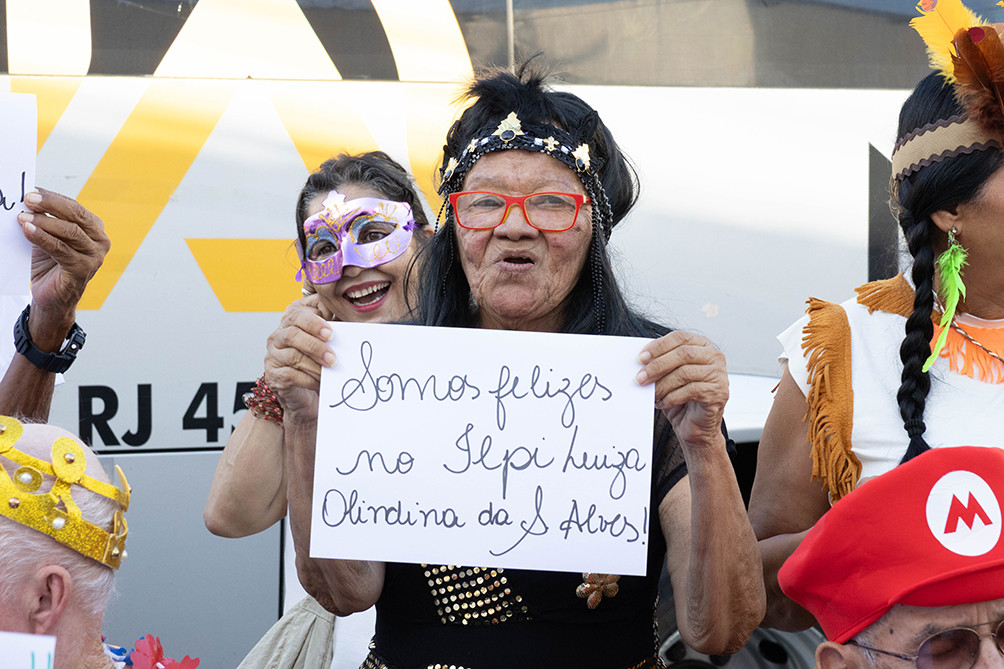 a!
RJ 45
Somos felizes
no Ilpi Luiza
Olindina da S Alves!
M